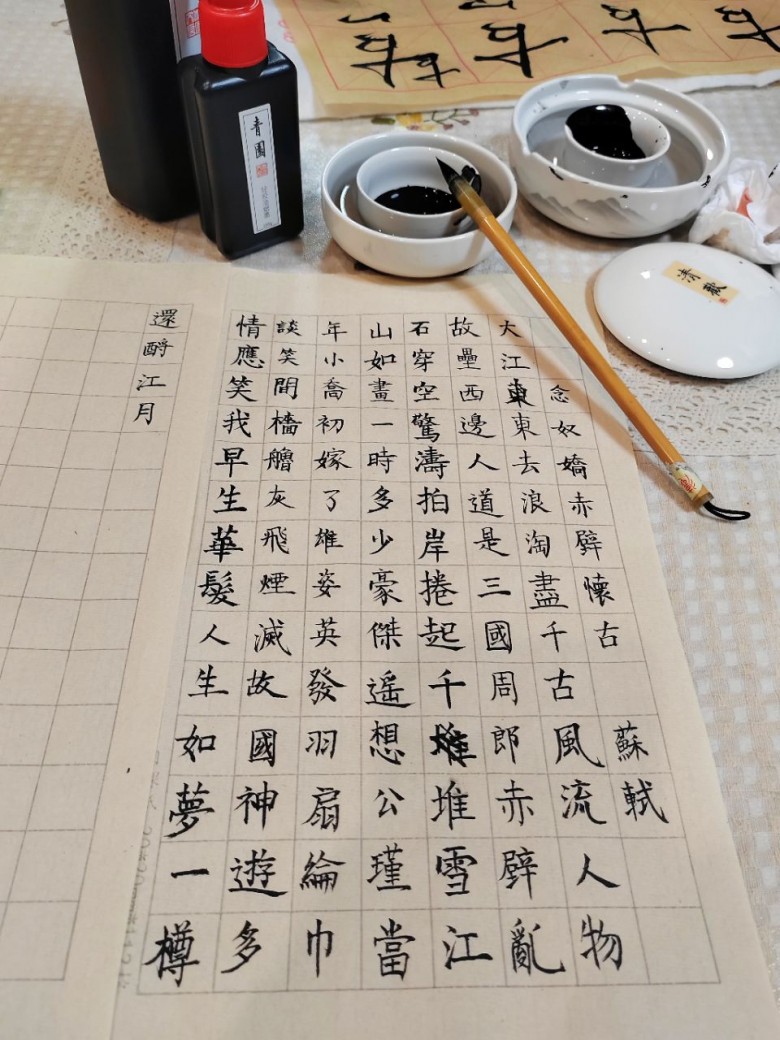 念奴嬌赤壁懷古 蘇軾
大江東東去浪淘盡千古風流人物
故壘西邊人道是三國周郎赤壁亂
石穿空驚濤拍岸捲起千堆堆雪江
山如畫一時多少豪傑遥想公瑾當
年小喬初嫁了雄姿英發羽扇綸巾
談笑間檣艣灰飛煙滅故國神遊多
情應笑我早生華髮人生如夢一樽
還酹江月
清歡